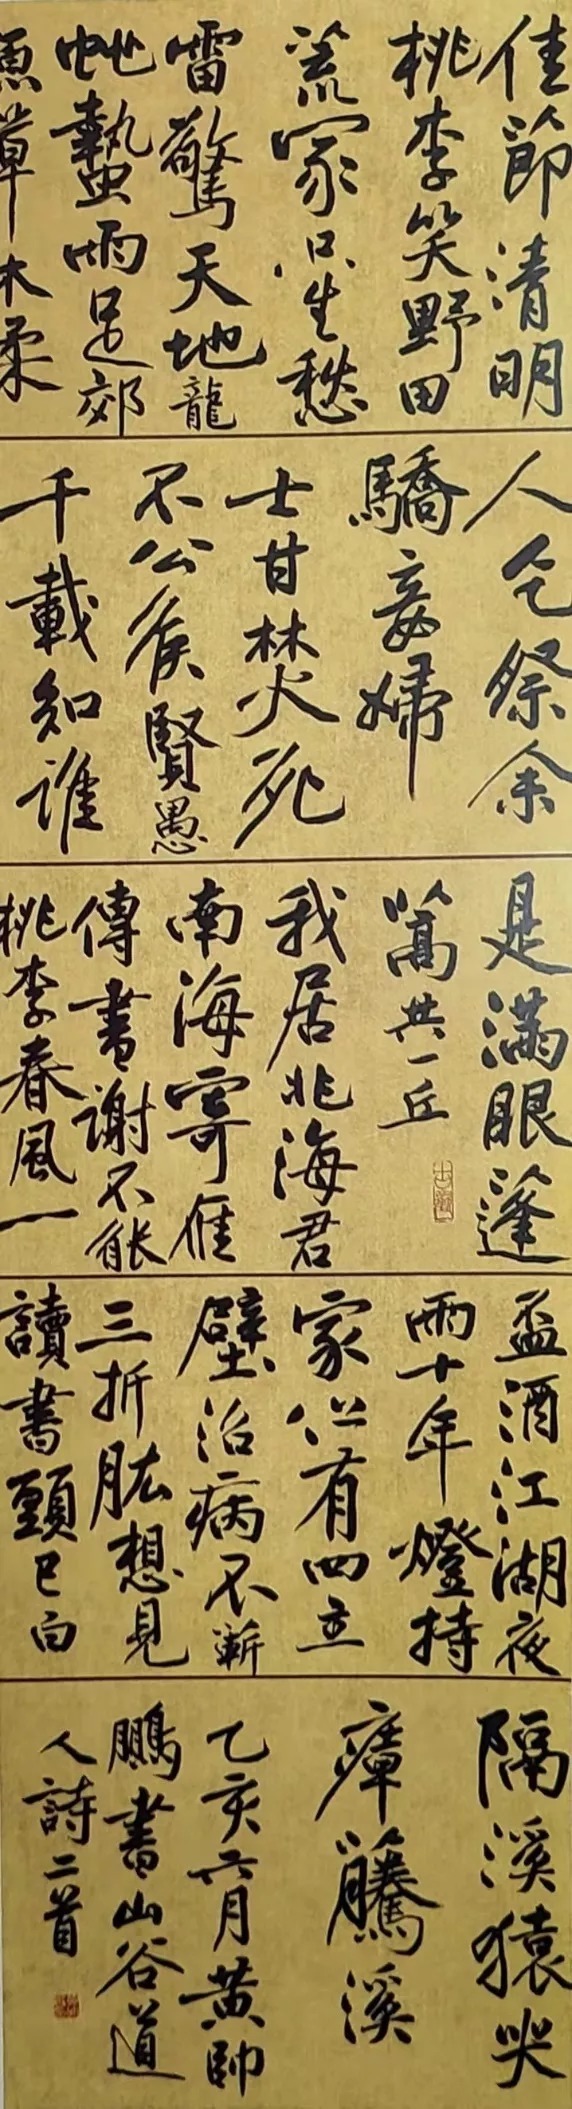 佳節清明
桃李笑野田
荒冢只生愁
雷驚天地龍
虵蟄雨足郊
原草木柔
人乞祭余
驕妾婦
士甘焚死
不公侯賢愚
千載知誰
是滿眼蓬
蒿共一丘
我居北海君
南海寄雁
傳書謝不能
桃李春風一
盃酒江湖夜
雨十年燈持
家但有四立
壁治病不蘄
三折肱想見
讀書頭已白
隔溪猿哭
瘴籐溪
乙亥六月黃帥
鵬書山谷道
人詩二首